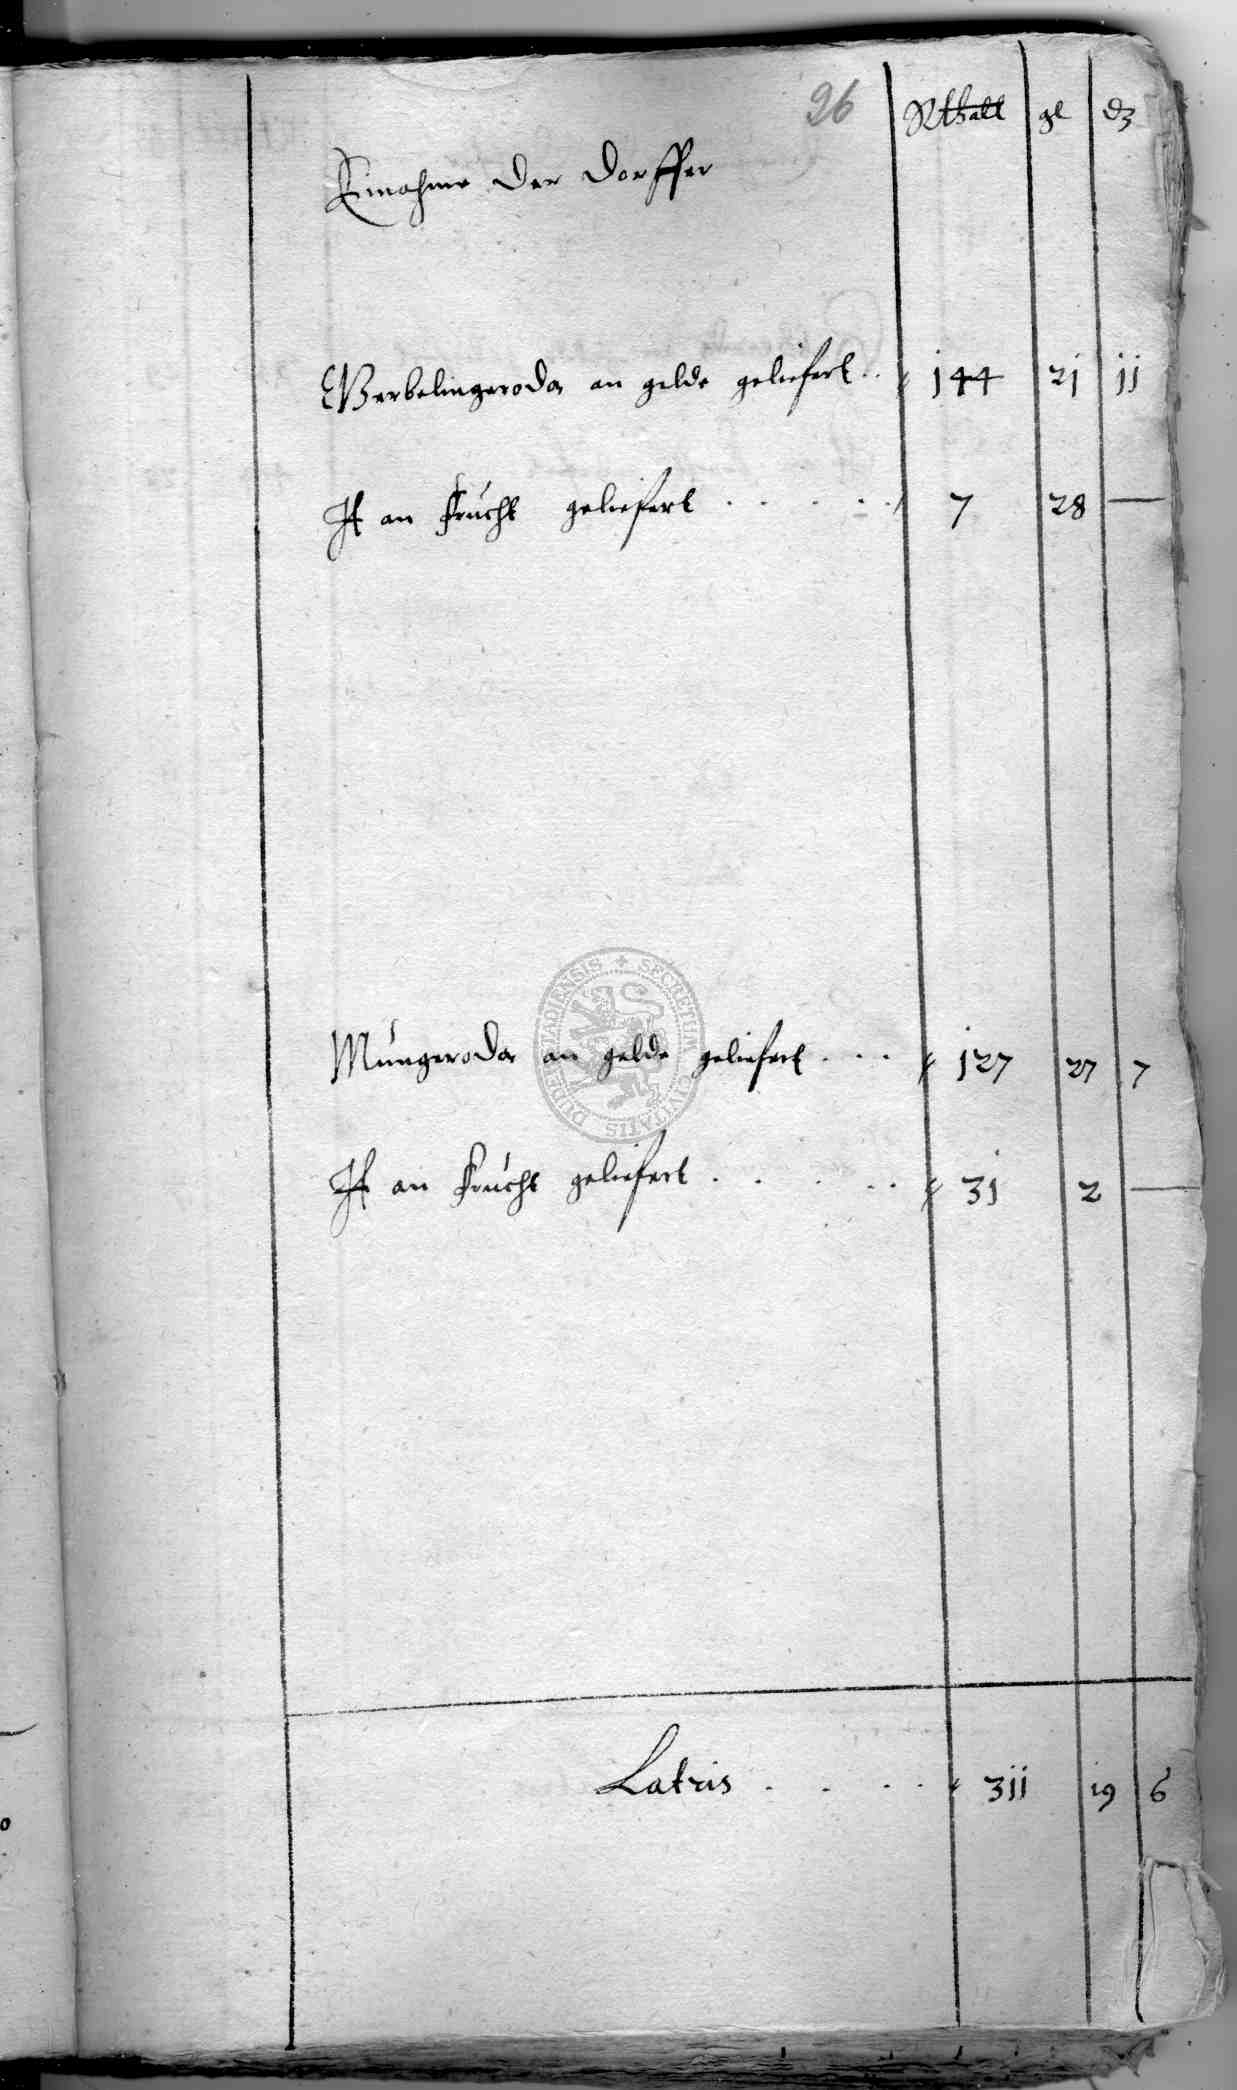 96
Rthall gl d3
Einahme der dorffer
Werbelingeroda an gelde geliefert . . 144 21 11
It an frucht geliefert . . . . . 7 28 —
Mungeroda an gelde geliefert . . . 127 27 7
It an frucht geliefert . . . . . 31 2 —
Latris . . . . 311 19 6
SECRETUM CIVITATIS DUDERSTADIENSIS